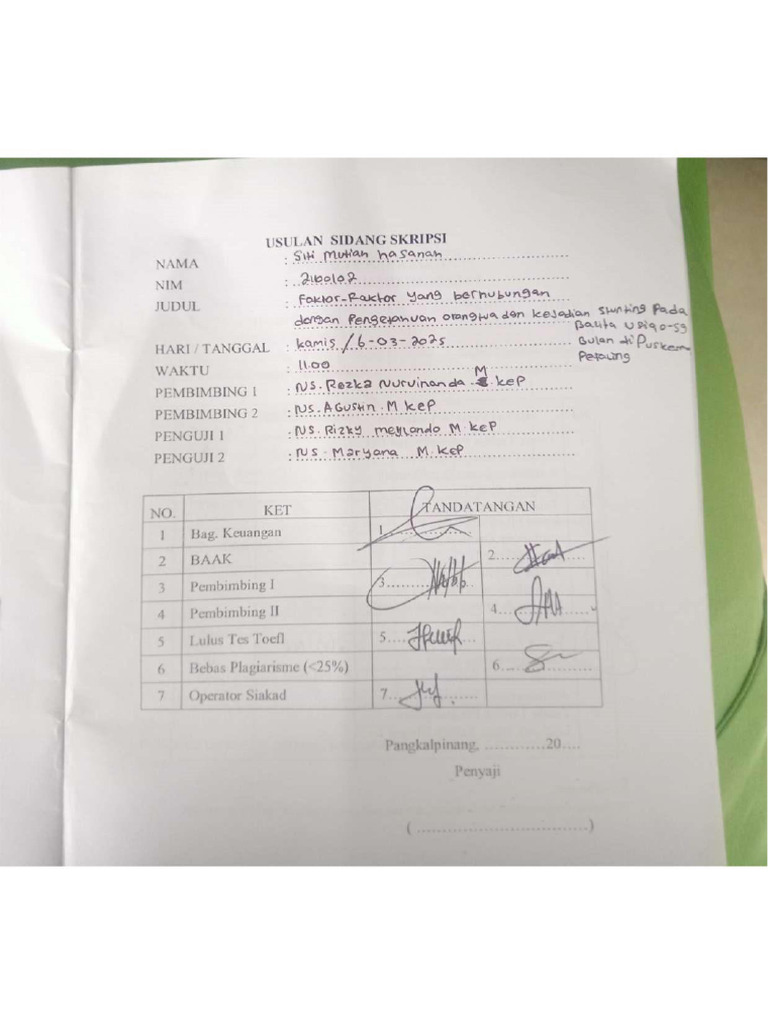 USULAN SIDANG SKRIPSI
NAMA : Siti Mutiah hasanah
NIM : 2100102
JUDUL : Faktor-Faktor yang berhubungan
dengan Pengetahuan orangtua dan kejadian stunting Pada
Balita usia 0-59
Bulan di Puskesmas
Petaling
HARI / TANGGAL : kamis / 6-03-2025
WAKTU : 11.00
PEMBIMBING 1 : NS. Rezka Nurvinanda M. kep
PEMBIMBING 2 : NS. Agustin M kep
PENGUJI 1 : NS. Rizky meylando M. kep
PENGUJI 2 : NS. Maryana M. kep
NO. KET TANDATANGAN
1 Bag. Keuangan 1
2 BAAK 2
3 Pembimbing I 3
4 Pembimbing II 4
5 Lulus Tes Toefl 5
6 Bebas Plagiarisme (<25%) 6
7 Operator Siakad 7
Pangkalpinang, .............20....
Penyaji
( .................................)